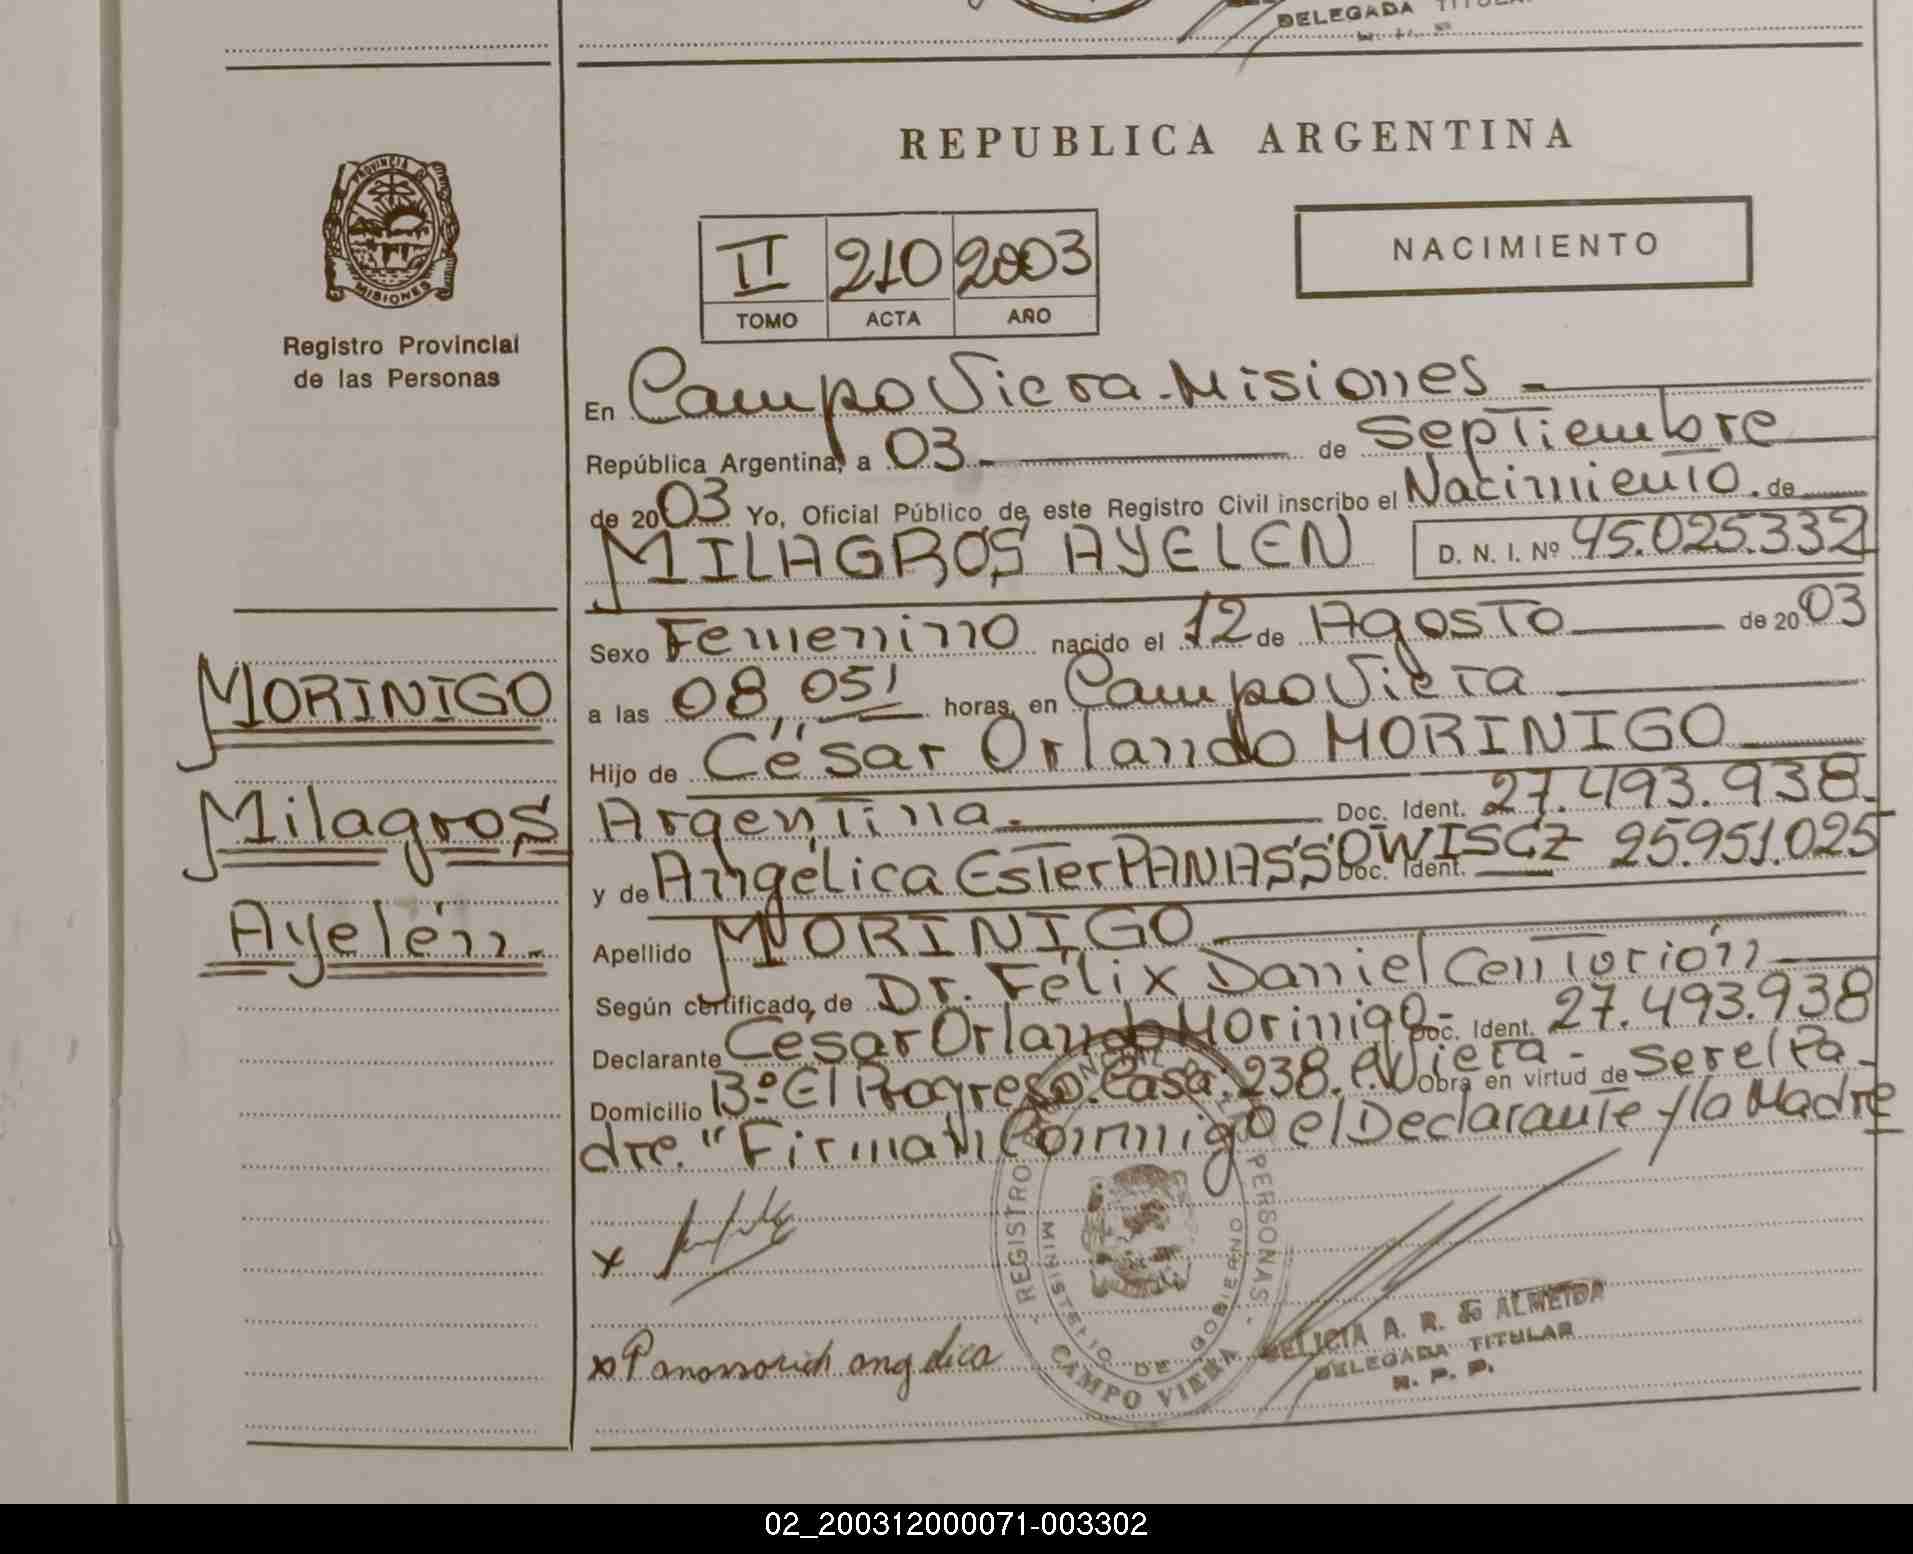 DELEGADA TITULAR
PROVINCIA DE
MISIONES
Registro Provincial
de las Personas
MORINIGO
Milagros
Ayelén.-
REPUBLICA ARGENTINA
NACIMIENTO
II 210 2003
TOMO ACTA AÑO
En Campo Viera - Misiones -
República Argentina, a 03 - de Septiembre
de 2003 Yo, Oficial Público de este Registro Civil inscribo el Nacimiento de
MILAGROS AYELEN D. N. I. Nº 45.025.332
Sexo Femenino nacido el 12 de Agosto de 2003
a las 08,05' horas, en Campo Viera
Hijo de César Orlando MORINIGO
Argentina.- Doc. Ident. 27.493.938-
y de Angélica Ester PANASSOWISCZ Doc. Ident. 25.951.025
Apellido MORINIGO
Según certificado, de Dr. Félix Daniel Centorión
Declarante César Orlando Morinigo - Doc. Ident. 27.493.938
Domicilio Bº El Progreso. Casa: 238. C. Viera - Obra en virtud de ser el Pa-
dre." Firman Conmigo el Declarante y la Madre
x
x Panassowich angelica
REGISTRO PROVINCIAL DE LAS PERSONAS
MINISTERIO DE GOBIERNO
CAMPO VIERA
FELICIA A. R. de ALMEIDA
DELEGADA TITULAR
R. P. P.
02_200312000071-003302